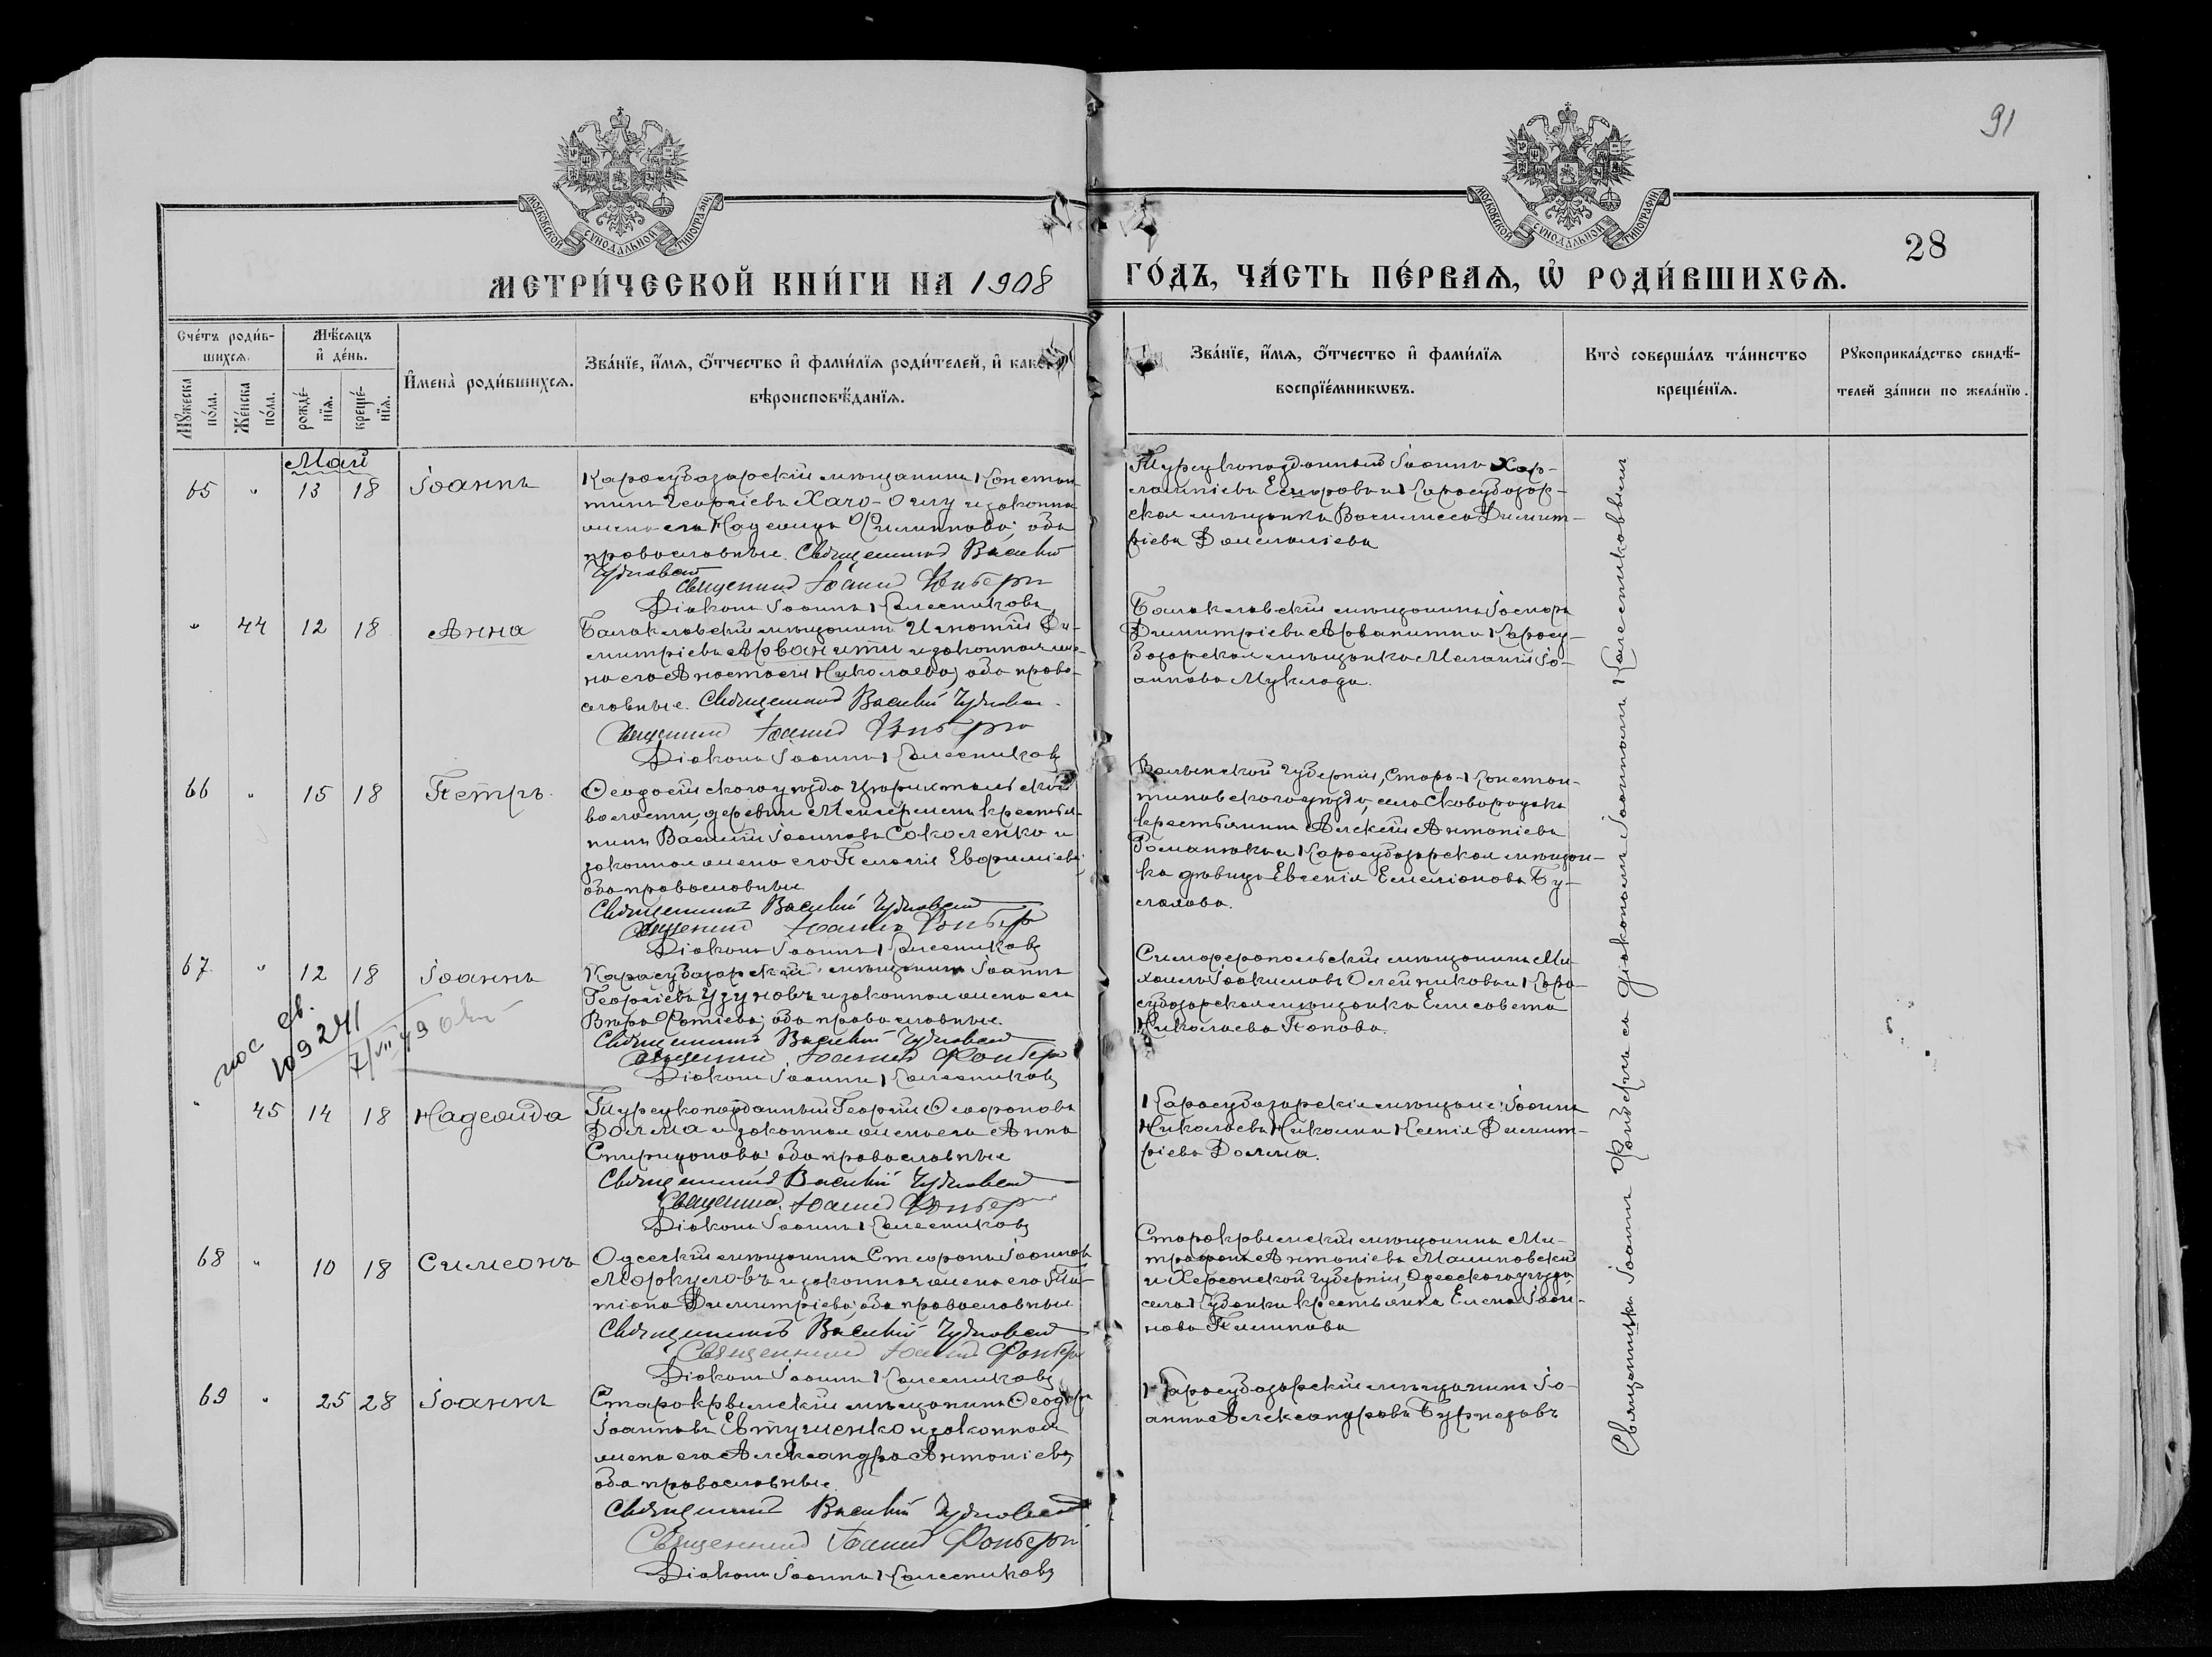 91
МОСКОВСКОЙ СѴНОДАЛЬНОЙ ТИПОГРАФІИ
МОСКОВСКОЙ СѴНОДАЛЬНОЙ ТИПОГРАФІИ
28
МЕТРИ́ЧЕСКОЙ КНИ́ГИ НА 1908 ГО́ДЪ, ЧА́СТЬ ПЕ́РВАѦ, Ѡ҆ РОДИ́ВШИХСѦ.
Сче́тъ роди́в-
шихсѧ.
Мѣ́сѧцъ
и҆ де́нь.
Мꙋ́жеска
по́ла.
Же́нска
по́ла.
рожде́-
нїѧ.
креще́-
нїѧ.
И҆мена̀ роди́вшихсѧ.
Зва́нїе, и҆́мѧ, ѻ҆́тчество и҆ фами́лїѧ роди́телей, и҆
вѣроисповѣ́данїѧ.
Зва́нїе, и҆́мѧ, ѻ҆́тчество и҆ фами́лїѧ
воспрїе́мникѡвъ.
Кто̀ соверша́лъ та́инство
креще́нїѧ.
Рꙋкоприкла́дство свидѣ́-
телей за́писи по жела́нїю.
Май
65 " 13 18 Іоаннъ
Карасубазарскій мѣщанинъ Констан-
тинъ Георгіевъ Хачо-Оглу и законна
жена его Надежда Филиппова; оба
православные. Священникъ Василій
Чудновскій
Священникъ Іоаннъ Фонберг
Діаконъ Іоаннъ Колесниковъ
Турецкоподданный Іоаннъ Хар-
лампіевъ Егоровъ и Карасубазар-
ская мѣщанка Василисса Димит-
ріева
" 44 12 18 Анна
Балаклавскій мѣщанинъ Игнатій Ди-
митріевъ Арванити и законная же-
на его Анастасія Николаева; оба право-
славные. Священникъ Василій Чудновск
Священникъ Іоаннъ Фонберг
Діаконъ Іоаннъ Колесниковъ
Балаклавскій мѣщанинъ
Димитріевъ Арванити и Карасу-
базарская мѣщанка Меланія Іо-
аннова
66 " 15 18 Петръ
Ѳеодосійскаго уѣзда Цюрихтальской
волости, деревни крестья-
нинъ Василій Іоанновъ Соколенко и
законная жена его Пелагія Евфиміева;
оба православные
Священникъ Василій Чудновскій
Священникъ Іоаннъ Фонберг
Діаконъ Іоаннъ Колесниковъ
Волынской губерніи, Старо-Констан-
тиновскаго уѣзда, села Сковородокъ
крестьянинъ Алексій Антоніевъ
Романюкъ и Карасубазарская мѣщан-
ка дѣвица Евгенія Емеліанова Бу-
67 " 12 18 Іоаннъ
Карасубазарскій мѣщанинъ Іоаннъ
Георгіевъ Узуновъ и законная жена его
Вѣра Фотіева; оба православные.
Священникъ Василій Чудновскій
Священникъ Іоаннъ Фонберг
Діаконъ Іоаннъ Колесниковъ
Симферопольскій мѣщанинъ Ми-
хаилъ Іоакимовъ Олейниковъ и Кара-
субазарская мѣщанка Елисавета
Николаева Попова.
св.
109241
" 45 14 18 Надежда
Турецкоподданный Георгій Ѳеофановъ
Долма и законная жена его Анна
Спиридонова; оба православные
Священникъ Василій Чудновскій
Священникъ Іоаннъ Фонберг
Діаконъ Іоаннъ Колесниковъ
Карасубазарскіе мѣщане: Іоаннъ
Николаевъ и Ксенія Димит-
ріева Долма.
68 " 10 18 Симеонъ
Одесскій мѣщанинъ Стефанъ Іоаннов
Маркуловъ и законная жена его Та-
тіана Димитріева; оба православные
Священникъ Василій Чудновскій
Священникъ Іоаннъ Фонберг
Діаконъ Іоаннъ Колесниковъ
Старокрымскій мѣщанинъ Ми-
трофанъ Антоніевъ Малиновскій
и Херсонской губерніи, Одесскаго уѣзда
села крестьянка Елена Іоан-
нова
69 " 25 28 Іоаннъ
Старокрымскій мѣщанинъ Ѳеодоръ
Іоанновъ Евтушенко и законная
жена его Александра Антоніева,
оба православные.
Священникъ Василій Чудновскій
Священникъ Іоаннъ Фонберг
Діаконъ Іоаннъ Колесниковъ
Карасубазарскій мѣщанинъ Іо-
аннъ Александровъ
Священникъ Іоаннъ Фонбергъ съ діакономъ Іоанномъ Колесниковымъ